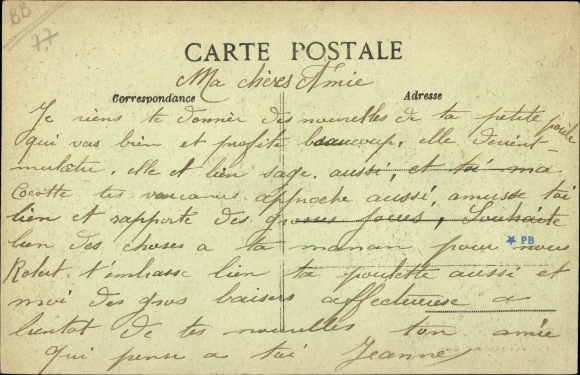 BB
77
CARTE POSTALE
Ma chères Amie
Correspondance
Adresse
Je viens te donner des nouvelles de ta petite poule
qui vas bien et profite beaucoup, elle devient
mulatre, elle et bien sage, aussi, et toi ma
Cocotte tes vacances approche aussi, amuse toi
bien et rapporte des grosses joues, Souhaite
bien des choses a ta maman, pour nous
★ PB
Robert t'embrasse bien ta poulette aussi et
moi des gros baisers affectueuse a
bientot de tes nouvelles ton amie
qui pense a toi Jeanne